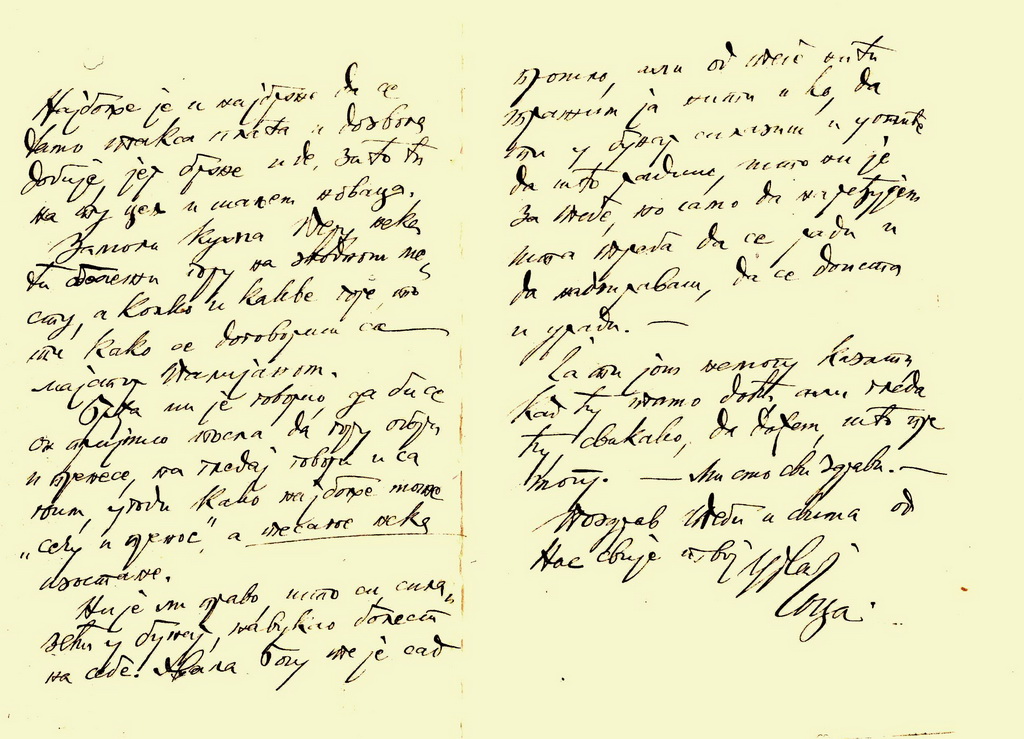 Најбоље је и најбрже да се
тамо такса плаћа и дозвола
добије, јер брже иде, зато ћу
на ту цел и шаљем новаца.
Замоли кума Перу нека
ти обележи гору на згодном ме-
сту, а колко и какве горе, то
ти како се договориш са
мајстор Дамјаном.
ми је говорио, да би се
он примио посла, да гору обори
и пренесе, па гледај говори и са
њим, уреди како најбоље може
„сечу и пренос", а тесање нека
изостане.
Није ми право, што си, сила-
зећи у бунар, навукао болест
на себе. Хвала Богу те је сад
прошло, али од тебе нити
тражим ја нити ико, да
ти у бунар силазиш и уопште
да што радиш, што ни је
за тебе, но само да наређујеш
шта треба да се ради и
да надзираваш, да се доиста
и уради. —
Ја ти још немогу казати
кад ћу тамо доћи, али гледа
ћу свакако, да дођем, што пре
могу. — Ми смо сви здрави. —
Поздрав теби и свима од
нас свију твој